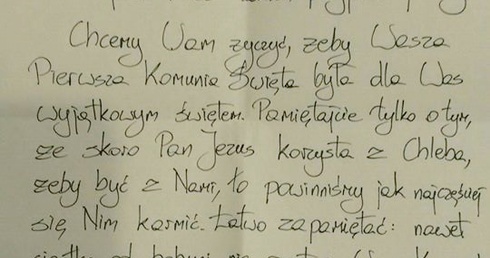 Chcemy Wam życzyć, żeby Wasza
Pierwsza Komunia Święta była dla Was
wyjątkowym świętem. Pamiętajcie tylko o tym,
że skoro Pan Jezus korzysta z Chleba,
żeby być z Nami, to powinniśmy jak najczęściej
się Nim karmić. Łatwo zapamiętać: nawet